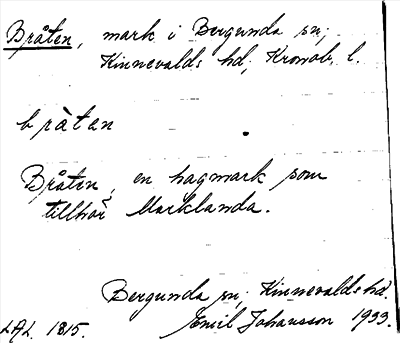 Bråten, mark i Bergunda sn;
Kinnevalds hd, Kronob. l.
bråtan
Bråten, en hagmark som
tillhör Marklanda.
Bergunda sn; Kinnevalds hd.
LAL. 1815. Emil Johansson 1933.